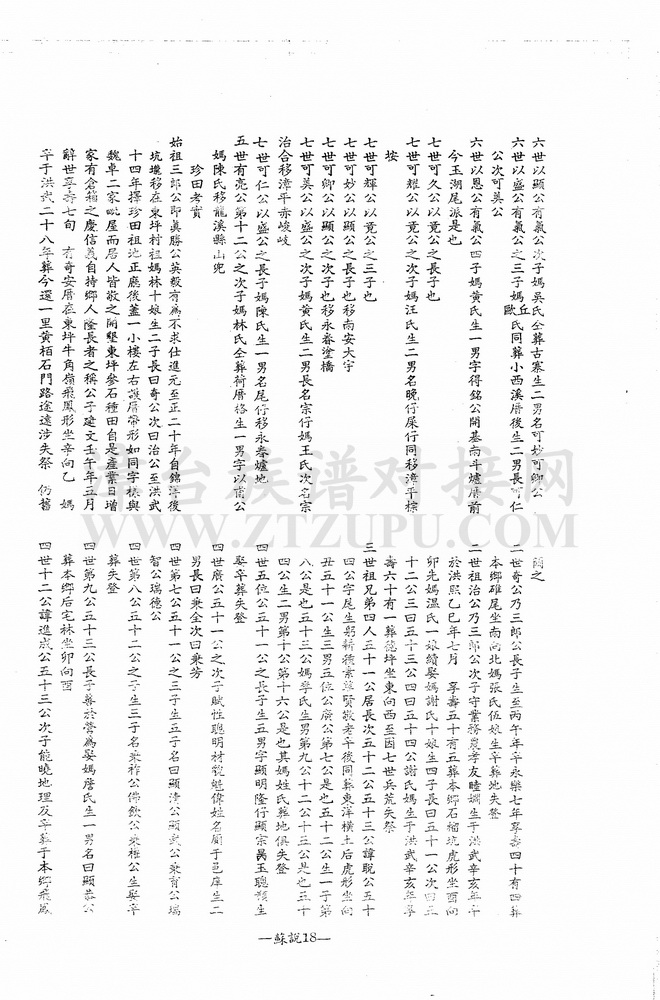 六世以顯公有氣公次子媽吳氏仝葬古寨生二男名可妙可卿公
六世以盛公有氣公之三子媽歐丘氏同葬小西溪厝後生二男長可仁
公次可美公
六世以恩公有氣公四子媽黃氏生一男字得銘公開基南斗爐厝前
今玉湖尾派是也
七世可久公以竟公之長子也
七世可耀公以竟公之次子媽汪氏生二男名晚仔屎仔同移漳平棕
垵
七世可輝公以竟公之三子也
七世可妙公以顯公之長子也移南安大宇
七世可卿公以顯公之次子也移永春塗橋
七世可美公以盛公之次子媽黃氏生二男長名宗仔媽王氏次名宗
治合移漳平赤峻岐
七世可仁公以盛公之長子媽陳氏生一男名尾仔移永春爐地
五世有亮公第十二公之次子媽林氏仝葬荷厝格生一男字以甫公
媽陳氏移龍溪縣山兜
珍田考實
始祖三郎公即真勝公英毅有為不求仕進元至正二十年自錦洋後
坑壠移在東坪村祖媽林十娘生二子長曰奇公次曰治公至洪武
十四年擇珍田祖地正廳後蓋一小樓左右護厝帶形如同字樣與
魏卓二家毗屋而居人皆敬之開墾東坪參石種田自是產業日增
家有倉箱之慶信義自持鄉人隆長者之稱公子建文壬午年五月
辭世享壽七旬 有奇安厝在東坪牛角嶺飛鳳形坐辛向乙 媽
卒于洪武二十八年葬今還一里黃栢石門路途遠涉失祭 仍舊
二世奇公乃三郎公長子生至丙午年卒永樂七年享壽四十有四葬
本鄉碓尾坐南向北媽張氏伍娘生卒葬地失登
二世祖治公乃三郎公次子守業務農孝友睦婣生于洪武辛亥年卒
於洪熙乙巳年七月 享壽五十有五葬本鄉石榴坑虎形坐酉向
卯先媽溫氏一娘續娶媽謝氏十娘生四子長曰五十一公次曰五
十二公三曰五十三公四曰五十四公謝氏媽生于洪武辛亥年享
壽六十有一葬德坪坐東向西至因七世兵荒失祭
三世祖兄弟四人五十一公居長次五十二公五十三公諱聰公五十
四公字尾生躬耕德業尊賢敬老卒後同葬東洋橫土后虎形坐向
丑五十一公生三男五位公廣公第七公是也五十二公生一子第
八公是也五十三公媽李氏生男第九公十二公十三公是也五十
四公生二男第十公第十六公是也其媽姓氏葬地俱失登
四世五位公五十一公之長子生五男字顯明隆仔顯宗昺玉聰額生
娶卒葬失登
四世廣公五十一公之次子賦性聰明材貌魁偉姓名聞于邑庠生二
男長曰秉全次曰秉芳
四世第七公五十一公之三子生五子名曰顯清公顯武公秉育公瑞
智公瑞德公
四世第八公五十二公之子生三子名秉祚公佛飲公秉權公生娶卒
葬失登
四世第九公五十三公長子善於營為娶媽詹氏生一男名曰顯恭公
葬本鄉后宅林坐卯向酉
四世十二公諱進成公五十三公次子能曉地理及卒葬于本鄉飛鳳
—蘇說18—
台族谱对接网
WWW.ZTZUPU.COM